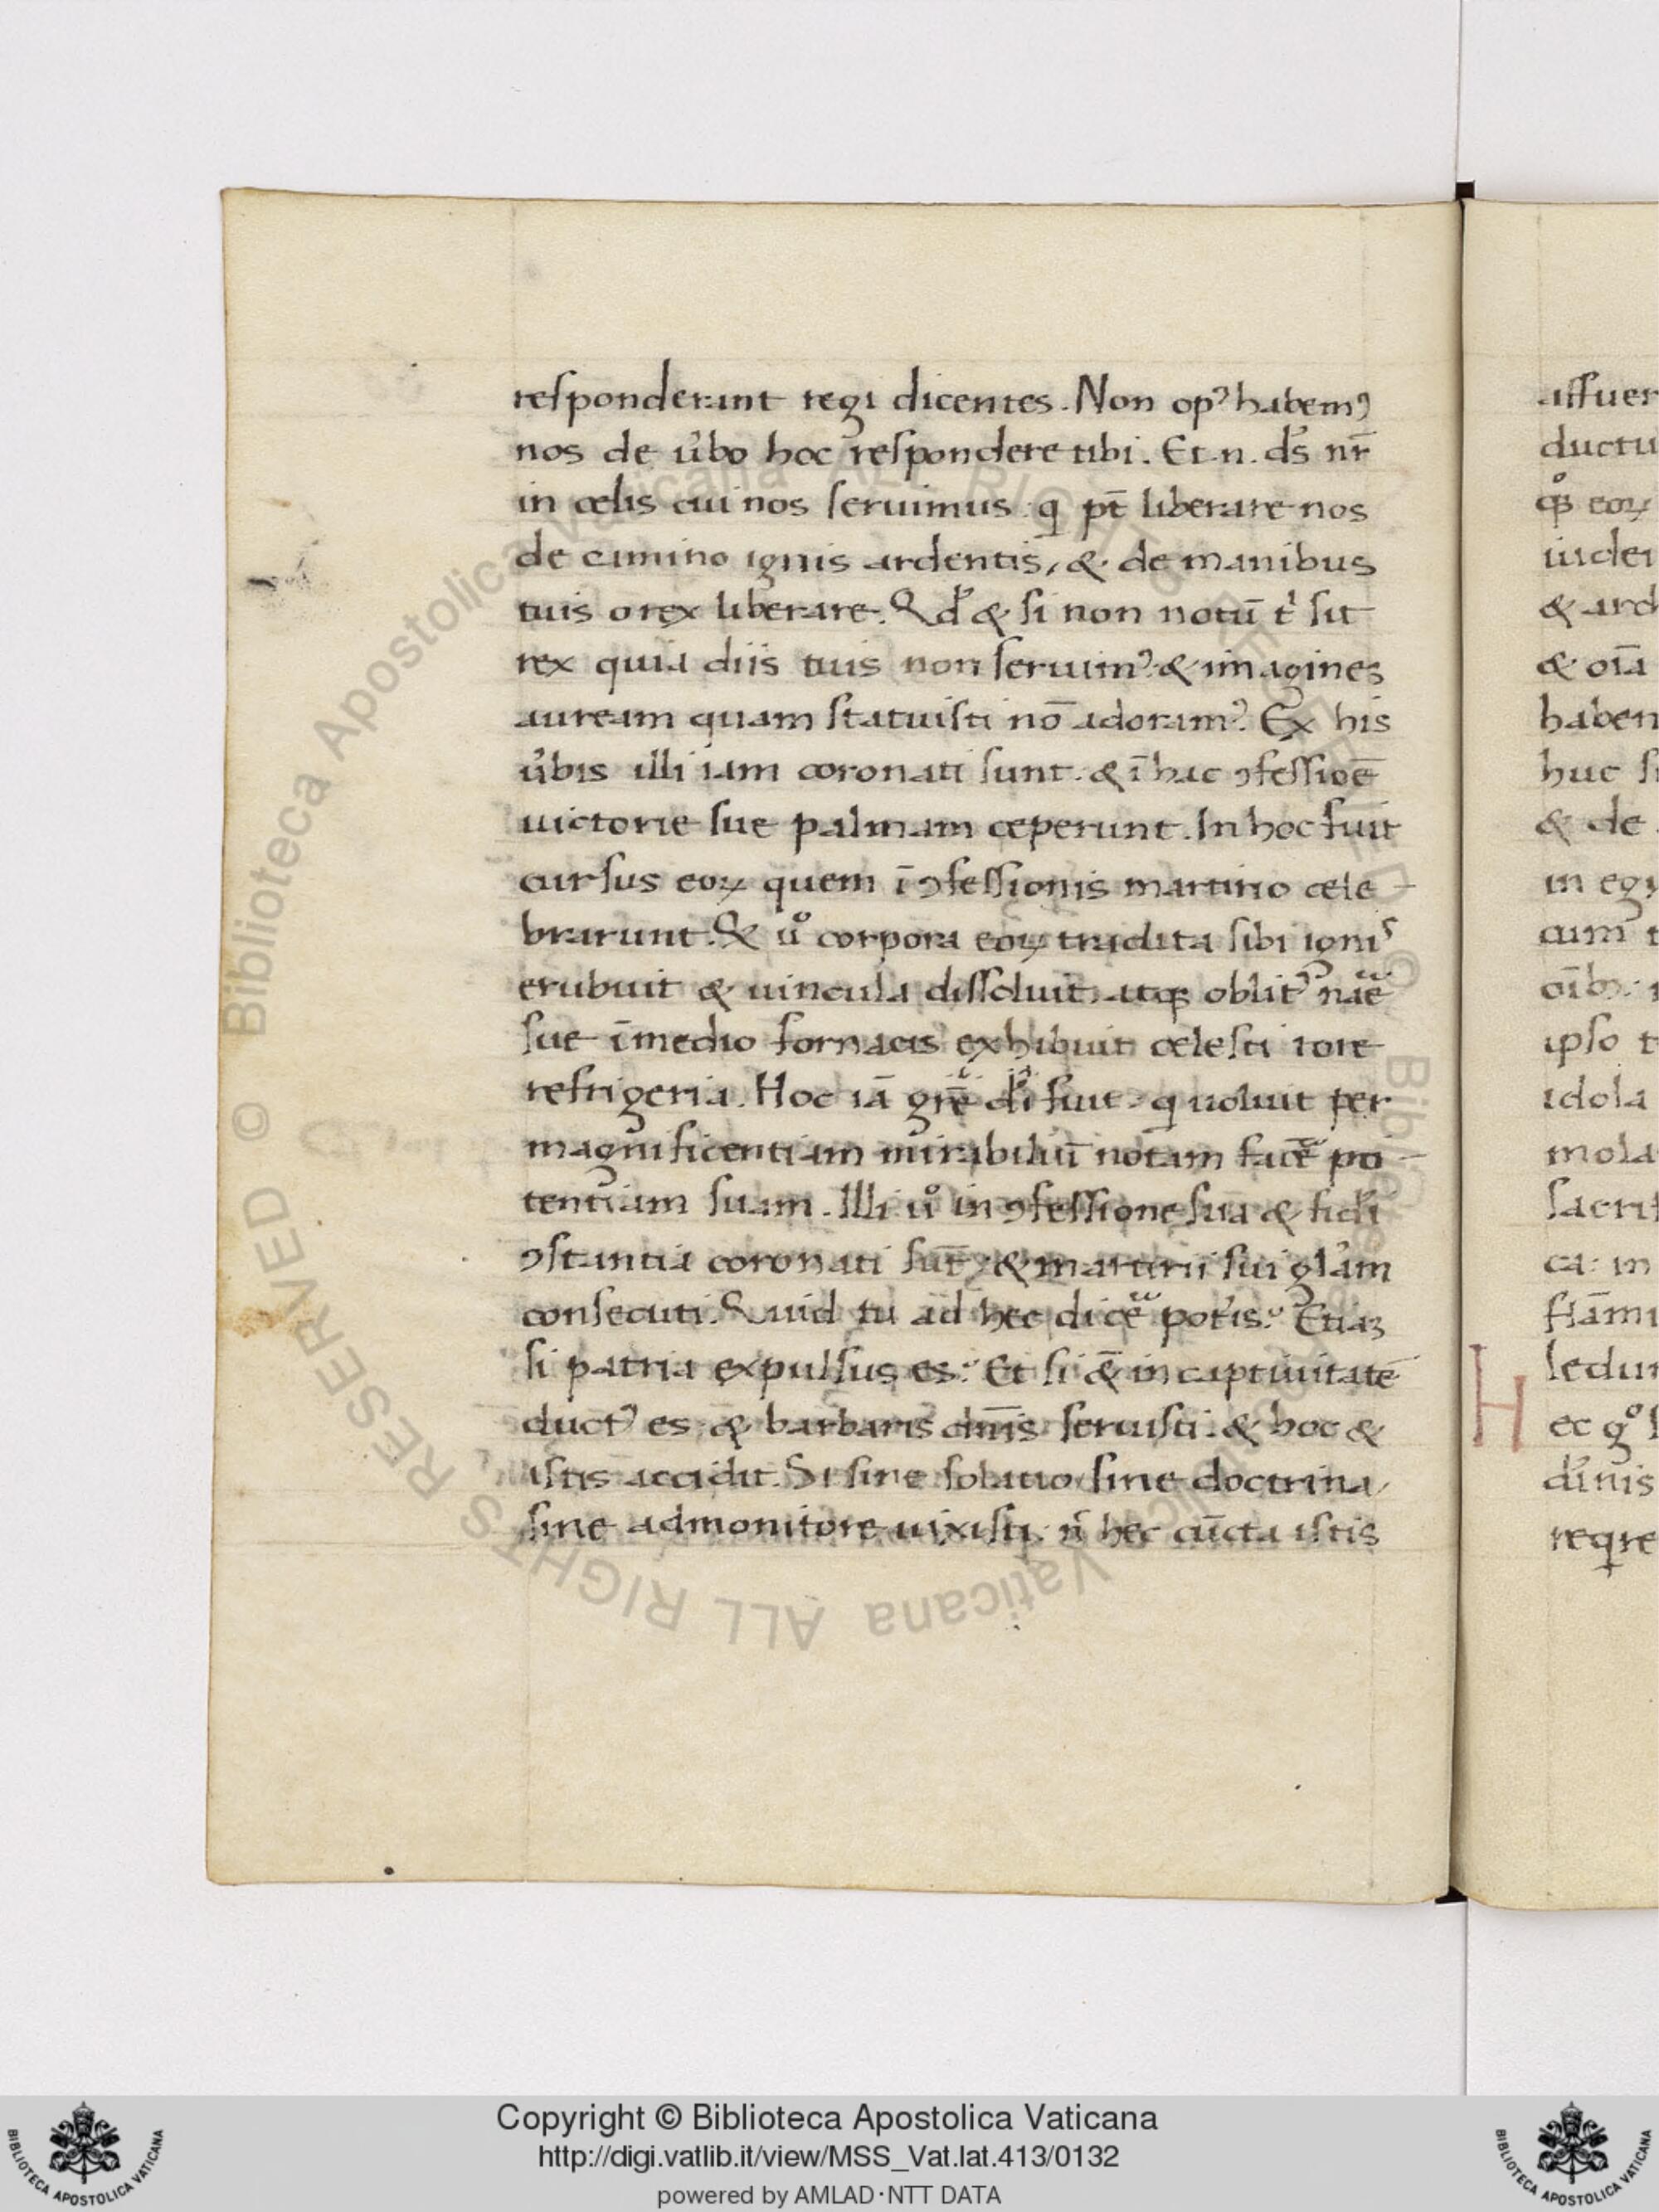 responderunt regi dicentes. Non opꝰ habemꝰ
nos de u̓bo hoc respondere tibi. Et.n. ds̓ nr̄
in celis cui nos seruimus: q pt̄ liberare nos
de camino ignis ardentis, & de manibus
tuis o rex liberare. Qd̓ & si non notū t' sit
rex quia diis tuis non seruimꝰ. & imagines
auream quam statuisti nō adoramꝰ. Ex his
u̓bis illi iam coronati sunt. & ī hac ꝯfessiōe
uictorie sue palmam ceperunt. In hoc fuit
cursus eoꝝ quem ī ꝯfessionis martirio cele-
brarunt. Qͦ uͦ corpora eoꝝ tradita sibi ignis
erubuit & uincula dissoluit. atqꝫ oblitꝰ nāe
sue ī medio fornacis exhibuit celesti rore
refrigeria. Hoc iā grē d̓i fuit. q uoluit per
magnificentiam mirabiliū notam facē po-
tentiam suam. Illi uͦ in ꝯfessione sua & fid̓i
ꝯstantia coronati sūt. & martirii sui gl̓am
consecuti. Quid tu ad hec dicē pot̓is. Etiaꝫ
si patria expulsus es. Et si & in captiuitatē
ductꝰ es & barbaris dn̄is seruisti. & hoc &
istis accidit. Si sine solatio sine doctrina,
sine admonitore uixisti. n̄ hec cūcta istis
assuer
ductu
qͦꝫ eoꝝ
iudei
& ard
& oīa
haben
huc si
& de
in egy
cum t
oībꝫ:
ipso t
idola
mola
sacrif
ca: in
flāmi
ledun
H ec gͦ s
d̓inis
reqre
© Biblioteca Apostolica Vaticana ALL RIGHTS RESERVED
Copyright © Biblioteca Apostolica Vaticana
http://digi.vatlib.it/view/MSS_Vat.lat.413/0132
powered by AMLAD·NTT DATA
BIBLIOTECA APOSTOLICA VATICANA
BIBLIOTECA APOSTOLICA VATICANA